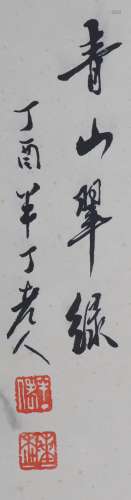 青山翠綠
丁酉半丁老人